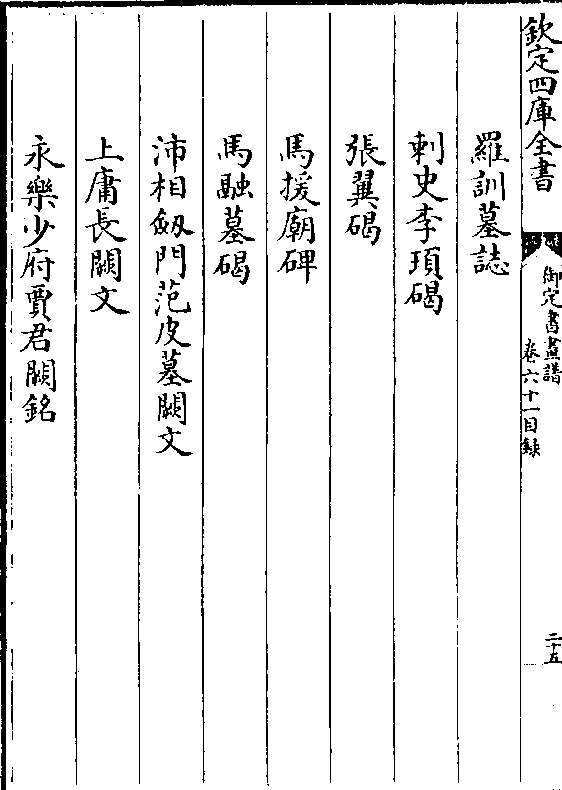 欽定四庫全書
御定書畫譜
卷六十一目錄
二十五
羅訓墓誌
刺史李頊碣
張翼碣
馬援廟碑
馬融墓碣
沛相劔門范皮墓闕文
上庸長闕文
永樂少府賈君闕銘